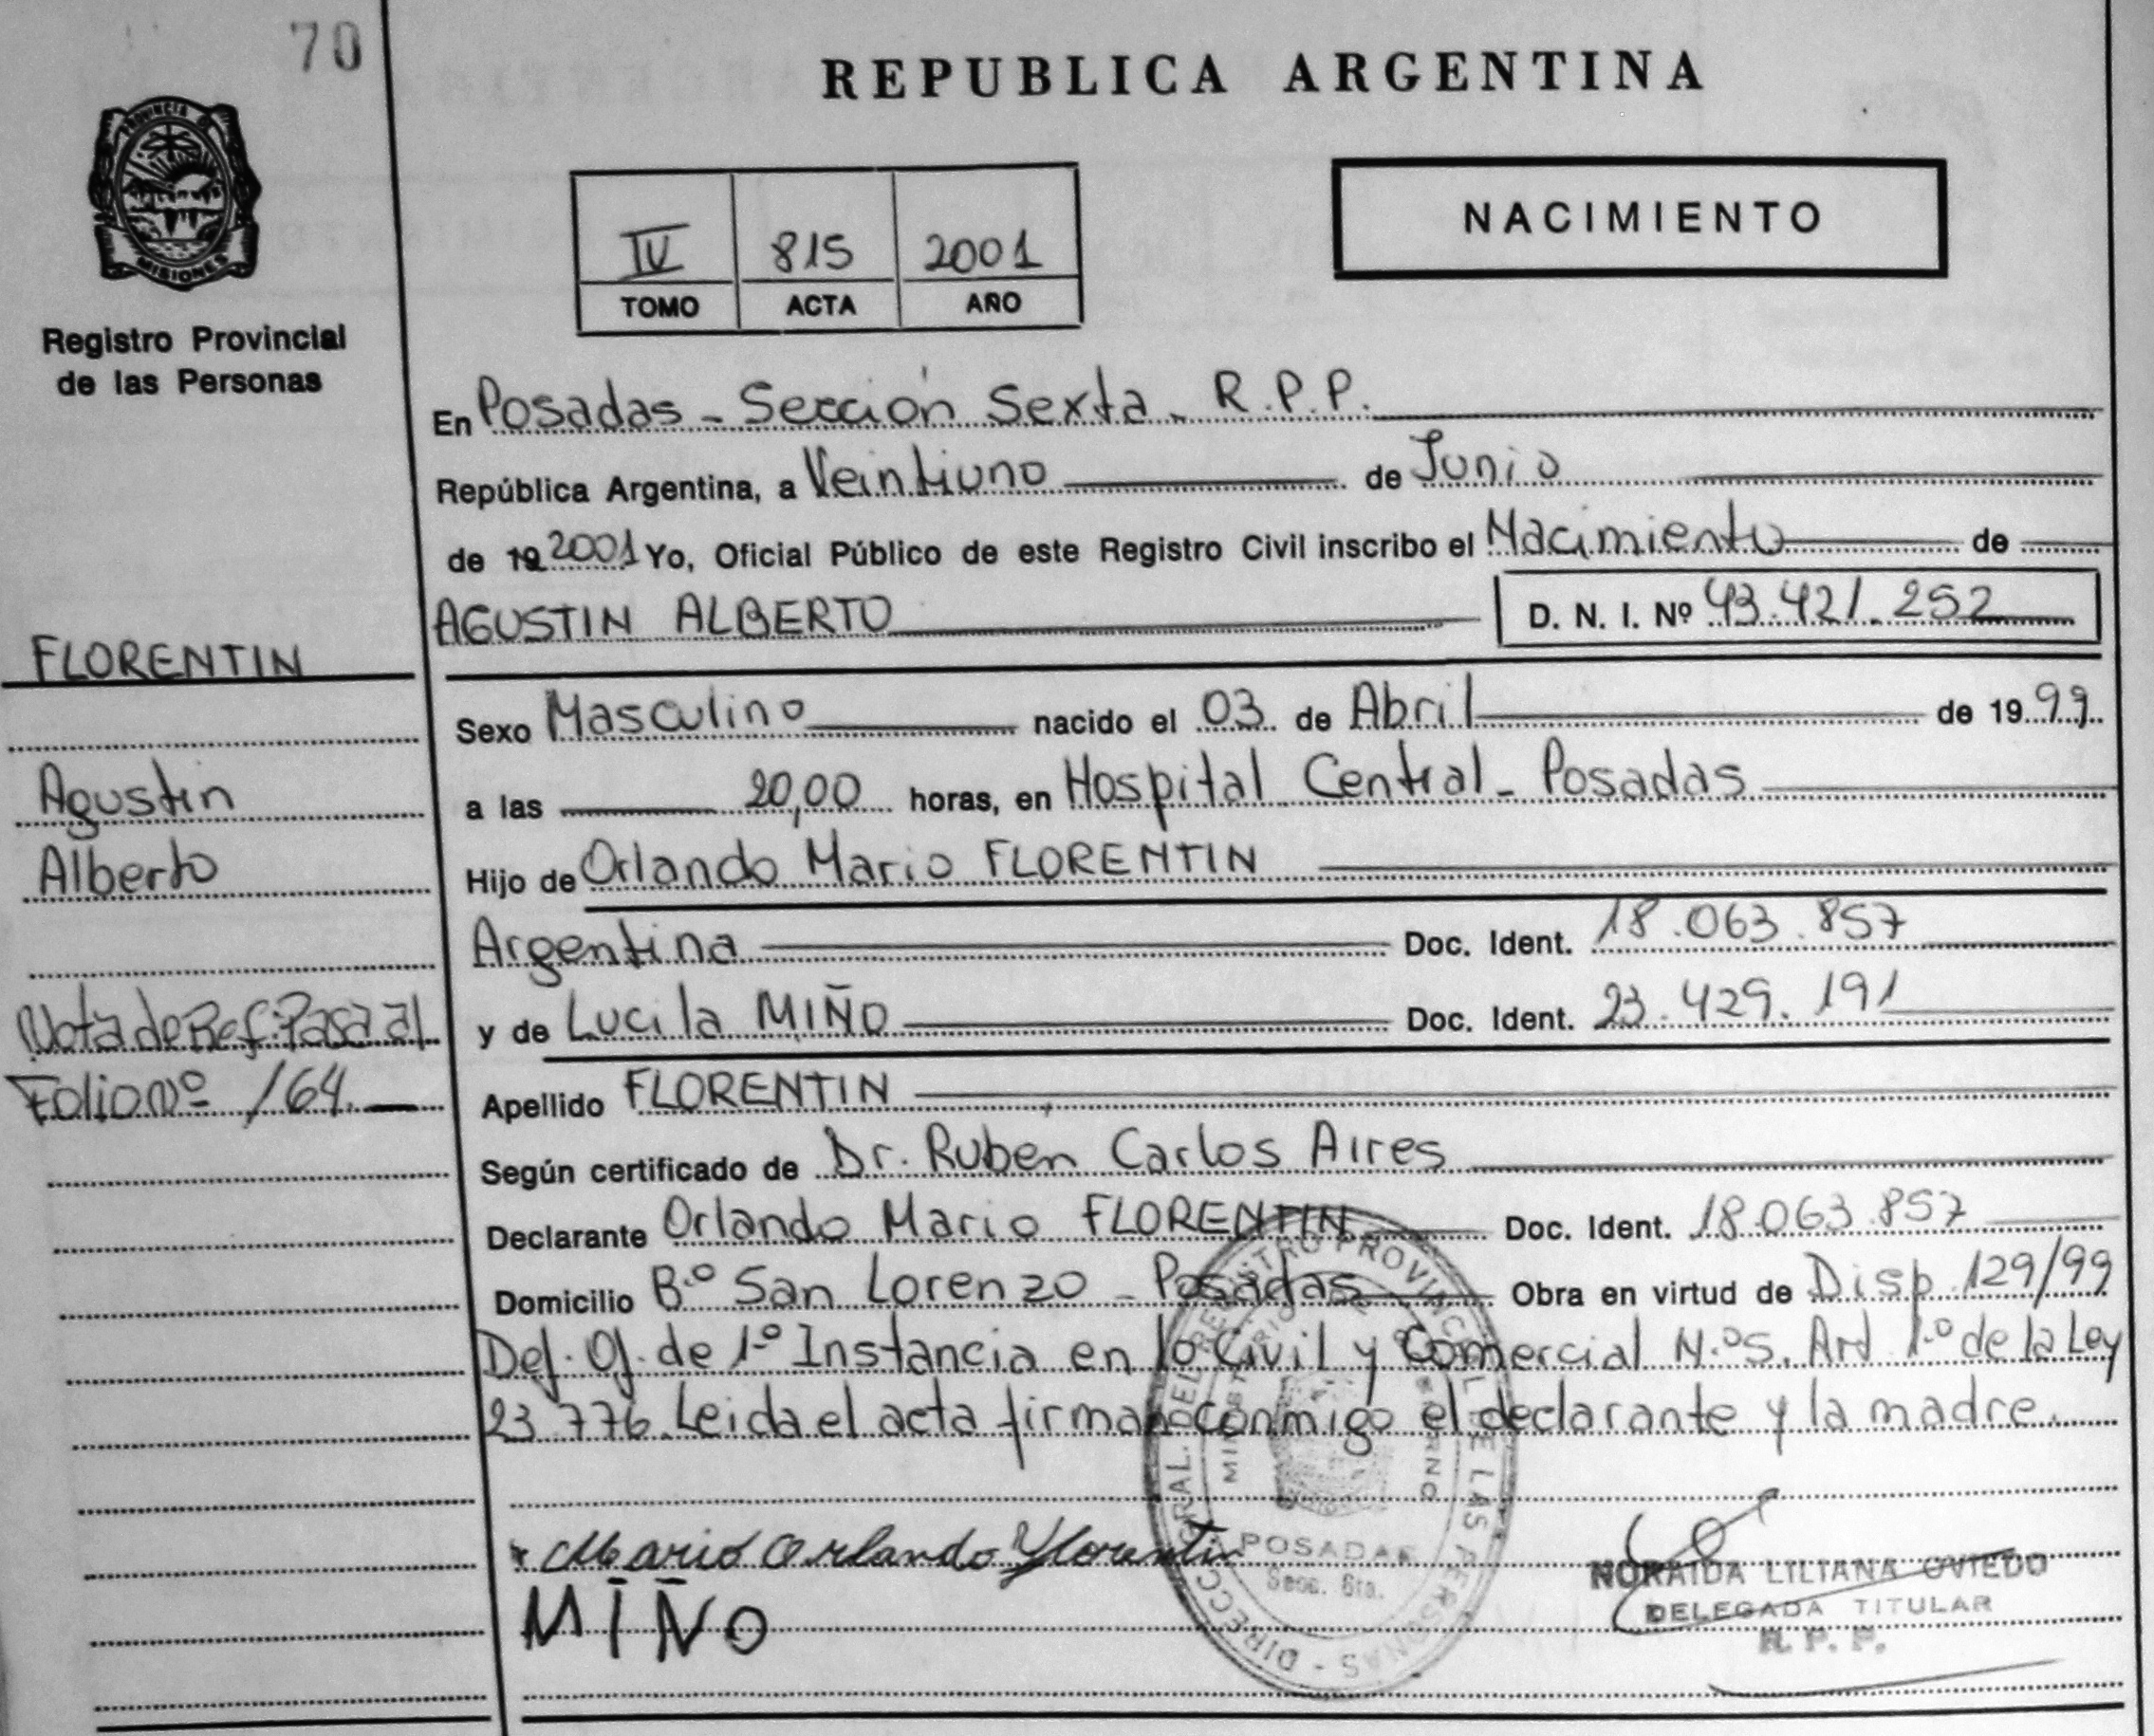 70
REPUBLICA ARGENTINA
PROVINCIA DE
MISIONES
Registro Provincial
de las Personas
NACIMIENTO
IV 815 2001
TOMO ACTA AÑO
En Posadas - Sección Sexta - R.P.P.
República Argentina, a Veintiuno de Junio
de 19 2001 Yo, Oficial Público de este Registro Civil inscribo el Nacimiento de
AGUSTIN ALBERTO D. N. I. Nº 43.421.252
FLORENTIN
Agustin
Alberto
Nota de Ref: Pasa al
Folio Nº 164.
Sexo Masculino nacido el 03 de Abril de 19 99
a las 20,00 horas, en Hospital Central - Posadas
Hijo de Orlando Mario FLORENTIN
Argentina Doc. Ident. 18.063.857
y de Lucila MIÑO Doc. Ident. 23.429.191
Apellido FLORENTIN
Según certificado de Dr. Ruben Carlos Aires
Declarante Orlando Mario FLORENTIN Doc. Ident. 18.063.857
Domicilio B.º San Lorenzo - Posadas Obra en virtud de Disp. 129/99
Def. Of. de 1º Instancia en lo Civil y Comercial N.º 5. Art 1.º de la Ley
23.776. Leida el acta firman conmigo el declarante y la madre.
Mario Orlando Florentin
MIÑO
DIRECC. GRAL. DEL REGISTRO PROVINCIAL DE LAS PERSONAS
POSADAS
Secc. 6ta.
NORAIDA LILIANA OVIEDO
DELEGADA TITULAR
R. P. P.